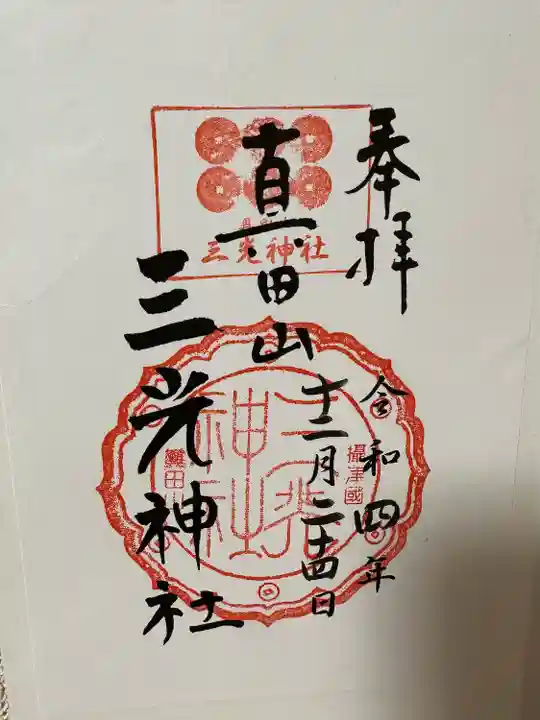 奉拝
令和四年
十二月二十四日
真田山
三光神社
三光神社
攝津國
眞田山
三光神社